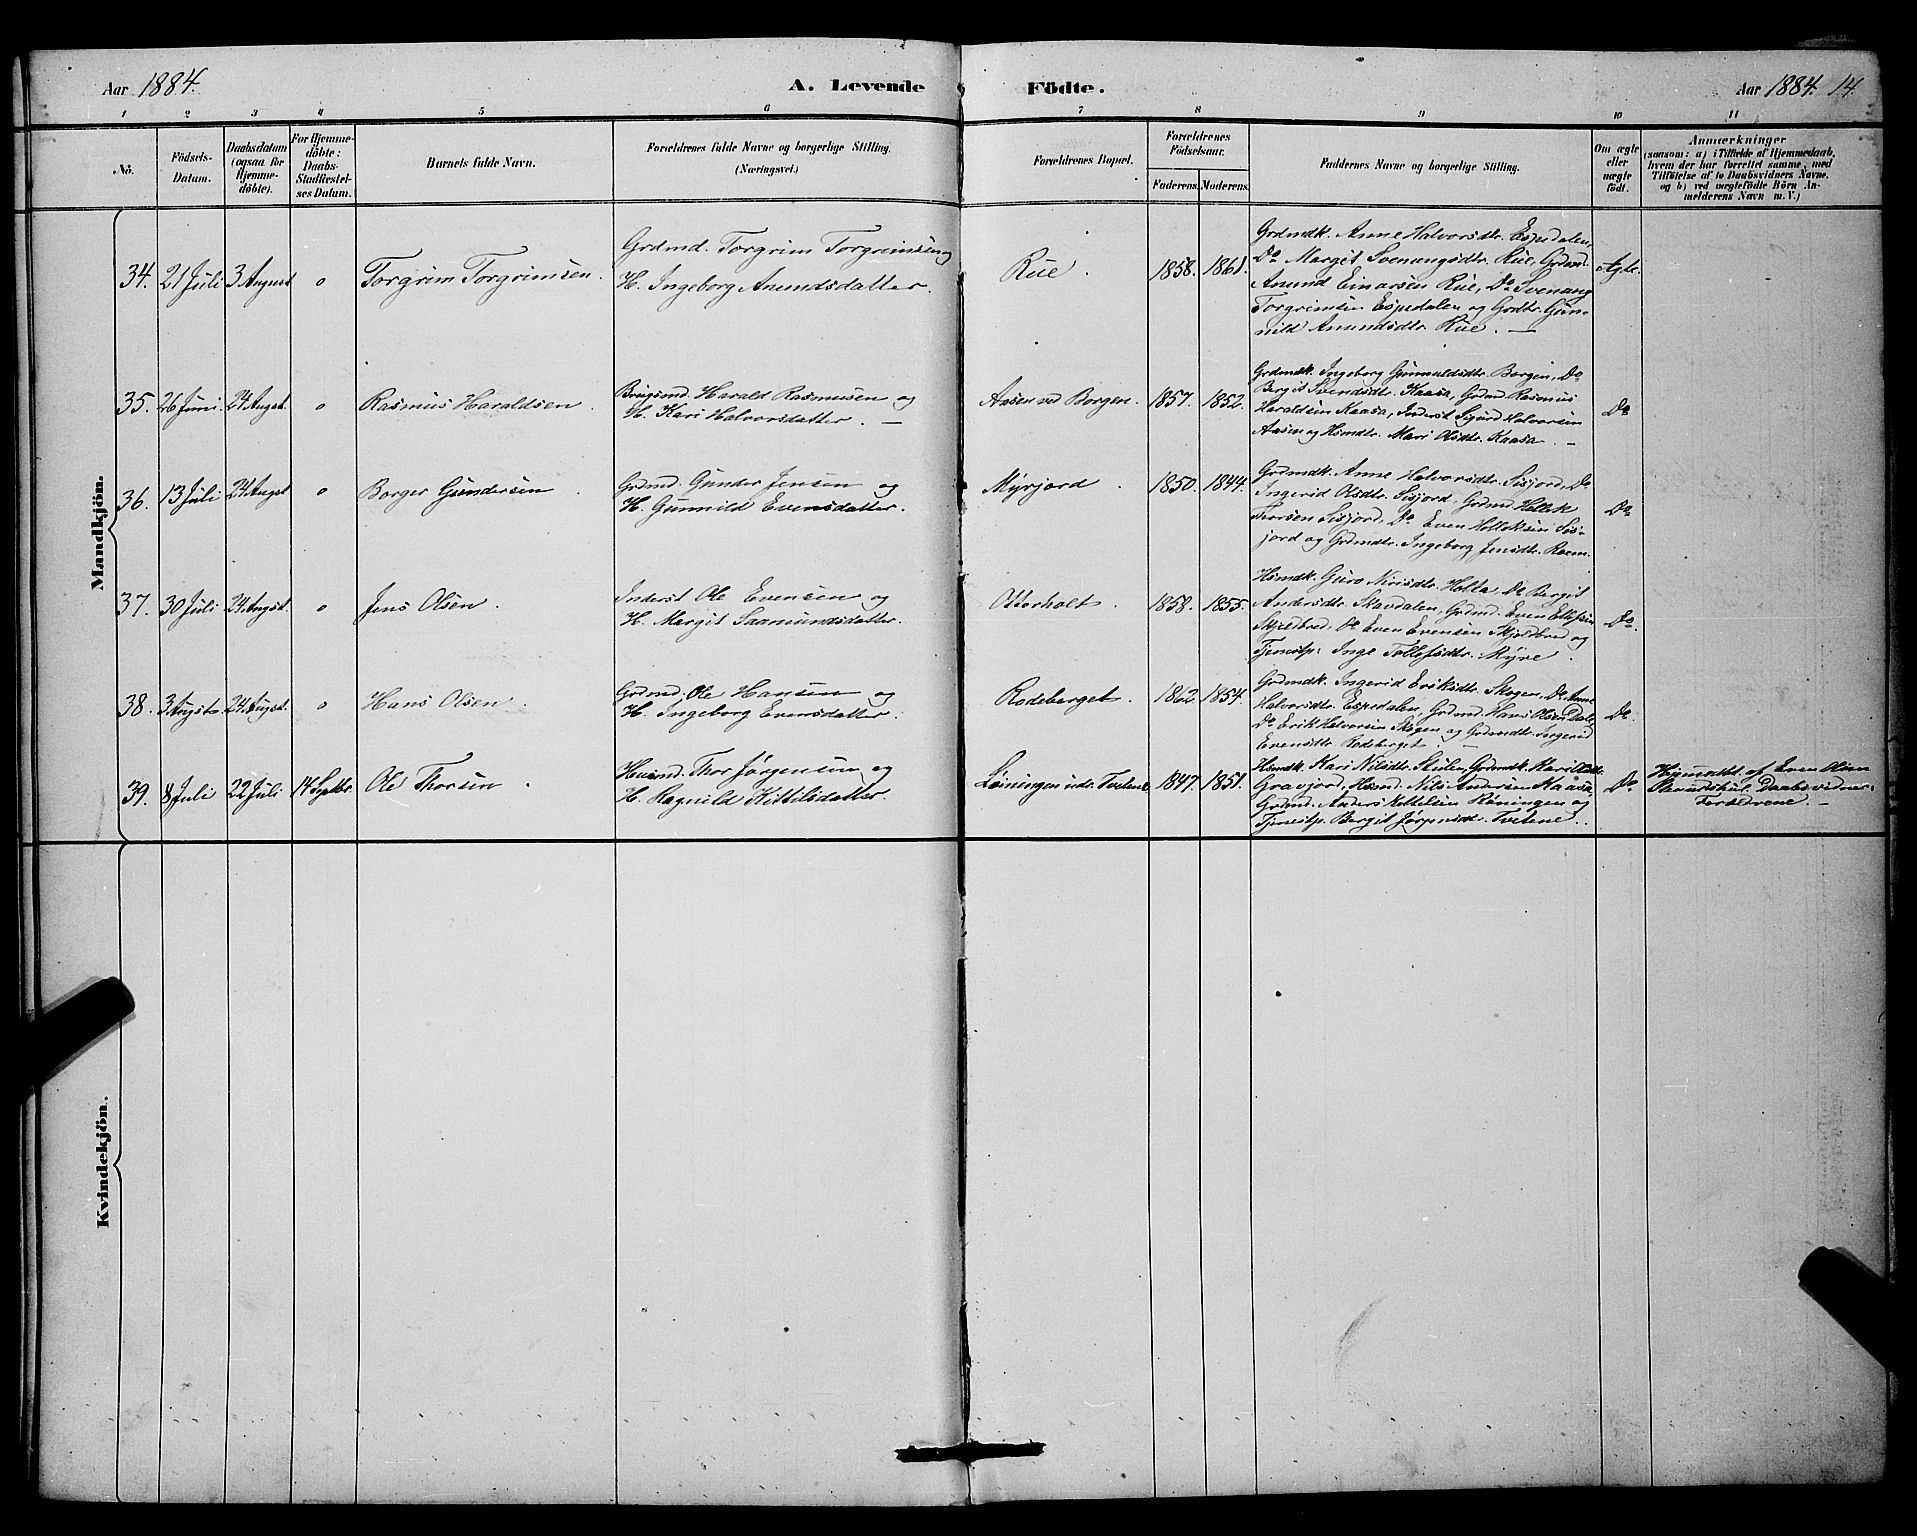 Aar 1884. A. Levende Födte. Aar 1884. 14.
1 2 3 4 5 6 7 8 9 10 11
No.
Födsels-
Datum.
Daabsdatum
(ogsaa for
Hjemme-
döbte).
For Hjemme-
döbte:
Daabs-
Stadfæstel-
ses Datum.
Barnets fulde Navn.
Forældrenes fulde Navne og borgerlige Stilling.
(Næringsvei.)
Forældrenes Bopæl.
Forældrenes
Födselsaar.
Faderens. Moderens.
Faddernes Navne og borgerlige Stilling.
Om ægte
eller
uægte
födt.
Anmærkninger
(saasom: a) i Tilfælde af Hjemmedaab,
hvem der har forrettet samme, med
Tilföielse af to Daabsvidners Navne,
og b) ved uægtefödte Börn An-
melderens Navn m. V.)
Mandkjön.
34. 21 Juli 3 August o Torgrim Torgrimsen.
Grdmd. Torgrim Torgrimsen og
H. Ingeborg Anundsdatter.
Rue. 1858. 1861.
Grdmdk. Anne Halvorsdtr. Espedalen,
Do Margit Svenungsdtr. Rue, Grdmd.
Anund Einarsen Rue, Do Svenung
Torgrimsen Espedalen og Grdtr. Gun-
nild Anundsdtr. Rue. —
Ægte.
35. 26 Juni 24 Augst. o Rasmus Haraldsen.
Brugsmd. Harald Rasmusen og
H. Kari Halvorsdatter. —
Aasen ved Borgen. 1857. 1852.
Grdmdk. Ingeborg Gunnuldsdtr. Borgen, Do
Bergit Svendsdtr. Kaasa, Grdmd. Rasmus
Haraldsen Kaasa, Inderst Sigurd Halvorsen
Aasen og Hsmdtr. Mari Olsdtr. Kaasa. —
Do
36. 13 Juli 24 Augst o Borger Gundersen.
Grdmd. Gunder Jensen og
H. Gunnild Evensdatter.
Myrjord. 1850. 1844.
Grdmdk. Anne Halvorsdtr. Sisjord, Do
Ingerid Olsdtr. Sisjord, Grdmd. Hellek
Thorsen Sisjord, Do Even Helleksen Sis-
jord og Grdmdtr. Ingeborg Jensdtr.
Do
37. 30 Juli 24 Augst. o Jens Olsen.
Inderst Ole Evensen og
H. Margit Saamundsdatter.
Otterholt. 1858. 1855.
Hsmdk. Guro Nirisdtr. Holta, Do Bergit
Andersdtr. Skavdalen, Grdmd. Even Ellefsen
Skjelbred, Do Even Evensen Skjelbred og
Tjenestp: Inge Tollefsdtr. Myre.
Do.
38. 3 Augst. 24 Augst. o Hans Olsen.
Grdmd. Ole Hansen og
H. Ingeborg Evensdatter.
Rodeberget. 1862 1854.
Grdmdk. Ingerid Eriksdtr. Skogen, Do Anne
Halvorsdtr. Espedalen, Grdmd. Hans Olsen Dale,
Do Erik Halvorsen Skogen og Grdmdtr. Ingerid
Evensdtr. Rodeberget. —
Do.
39. 8 Juli 22 Juli 14 Septbr. Ole Thorsen.
Husmd. Thor Jørgensen og
H. Hagnild Kittilsdatter.
Løiningen undr. Tvetene. 1847. 1851.
Hsmdk. Kari Nilsdtr. Grdmdk. Kari Olsdtr.
Gravjord, Husmd. Nils Andersen Kaasa,
Grdmd. Anders Kettelsen Røningen og
Tjenestp. Bergit Jørgensdtr. Tvetene.
Do
Hjemdøbt af Even Olsen
Daabsvidner:
Forældrene. —
Kvindekjön.